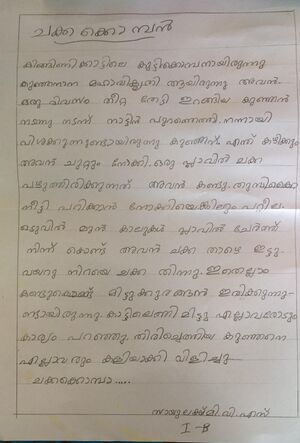 ചക്കക്കൊമ്പൻ
കിങ്ങിണിക്കാട്ടിലെ കുട്ടിക്കൊമ്പനായിരുന്നു
കുഞ്ഞനാന മഹാവികൃതി ആയിരുന്നു അവൻ.
ഒരു ദിവസം തീറ്റ തേടി ഇറങ്ങിയ കുഞ്ഞൻ
നടന്നു നടന്ന് നാട്ടിൽ എത്തി നന്നായി
വിശക്കുന്നുണ്ടായിരുന്നു കുഞ്ഞന്. എന്ത് കഴിക്കും
അവൻ ചുറ്റും നോക്കി. ഒരു പ്ലാവിൽ ചക്ക
പഴുത്തിരിക്കുന്നത് അവൻ കണ്ടു. തുമ്പിക്കൈ
നീട്ടി പറിക്കാൻ നോക്കിയെങ്കിലും പറ്റീല.
ഒടുവിൽ മുൻ കാലുകൾ പ്ലാവിൽ ചേർത്ത്
നിന്ന് കൊണ്ട് അവൻ ചക്ക താഴെ ഇട്ടു.
വയറു നിറയെ ചക്ക തിന്നു. ഇതെല്ലാം
കണ്ടുകൊണ്ട് മിട്ടുക്കുരങ്ങൻ ഇരിക്കുന്നു-
ണ്ടായിരുന്നു. കാട്ടിലെത്തി മിട്ടു എല്ലാവരോടും
കാര്യം പറഞ്ഞു. തിരിച്ചെത്തിയ കുഞ്ഞനെ
എല്ലാവരും കളിയാക്കി വിളിച്ചു
ചക്കക്കൊമ്പാ.....
സായൂലക്ഷ്മി. വി. എസ്
I - B